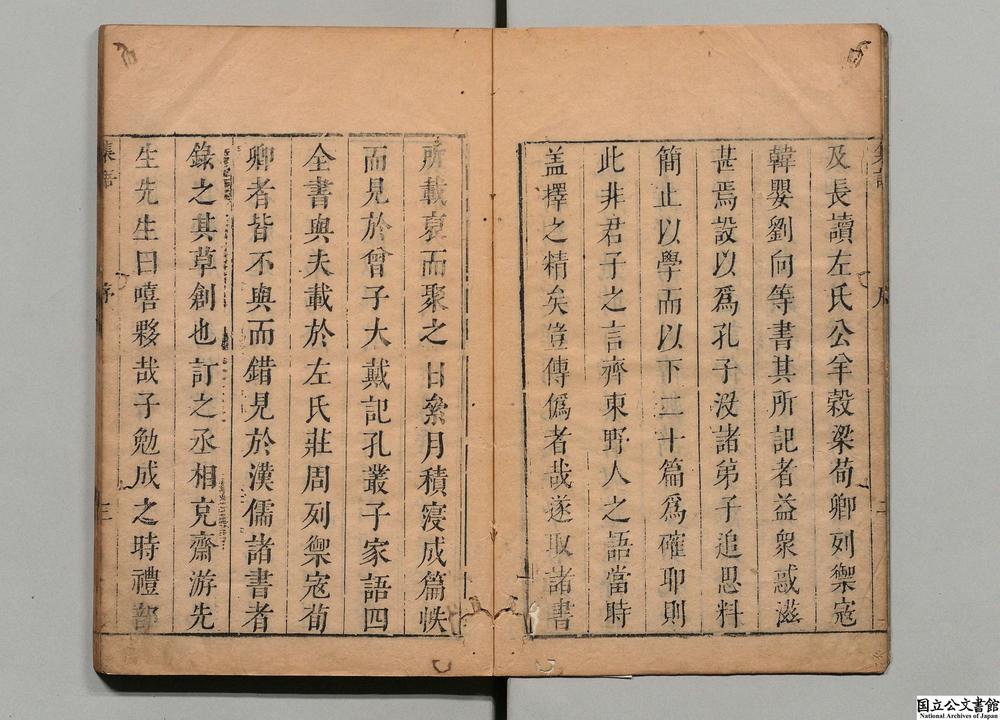 及長讀左氏公羊榖梁荀卿列禦寇
韓嬰劉向等書其所記者益衆惑滋
甚焉設以爲孔子没諸弟子追思料
簡止以學而以下二十篇爲確耶則
此非君子之言齊東野人之語當時
盖擇之精矣豈傳僞者哉遂取諸書
所載裒而聚之日絫月積寖成篇帙
而見於曾子大戴記孔叢子家語四
全書與夫載於左氏莊周列禦寇荀
卿者皆不與而錯見於漢儒諸書者
錄之其草創也訂之丞相克齋游先
生先生曰嘻夥哉子勉成之時禮部
集語
序
三
国立公文書館
National Archives of Japan